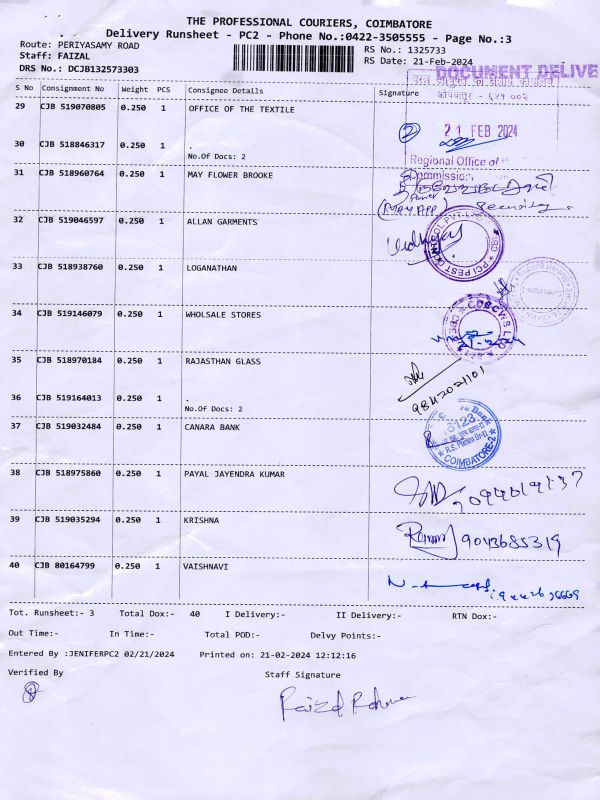 THE PROFESSIONAL COURIERS, COIMBATORE
Delivery Runsheet - PC2 - Phone No.:0422-3505555 - Page No.:3
Route: PERIYASAMY ROAD
Staff: FAIZAL
DRS No.: DCJB132573303
RS No.: 1325733
RS Date: 21-Feb-2024
DOCUMENT DELIVE
S No Consignment No Weight PCS Consignee Details Signature
29 CJB 519070805 0.250 1 OFFICE OF THE TEXTILE
कोयम्बत्तूर - ६४१ ००२
21 FEB 2024
30 CJB 518846317 0.250 1 .
No.Of Docs: 2
Regional Office of
31 CJB 518960764 0.250 1 MAY FLOWER BROOKE
Security
32 CJB 519046597 0.250 1 ALLAN GARMENTS
33 CJB 518938760 0.250 1 LOGANATHAN
34 CJB 519146079 0.250 1 WHOLSALE STORES
35 CJB 518970184 0.250 1 RAJASTHAN GLASS
36 CJB 519164013 0.250 1 .
No.Of Docs: 2
9842021101
37 CJB 519032484 0.250 1 CANARA BANK
COIMBATORE-2
38 CJB 518975860 0.250 1 PAYAL JAYENDRA KUMAR
39 CJB 519035294 0.250 1 KRISHNA
9043685319
40 CJB 80164799 0.250 1 VAISHNAVI
Tot. Runsheet:- 3 Total Dox:- 40 I Delivery:- II Delivery:- RTN Dox:-
Out Time:- In Time:- Total POD:- Delvy Points:-
Entered By :JENIFERPC2 02/21/2024 Printed on: 21-02-2024 12:12:16
Verified By Staff Signature